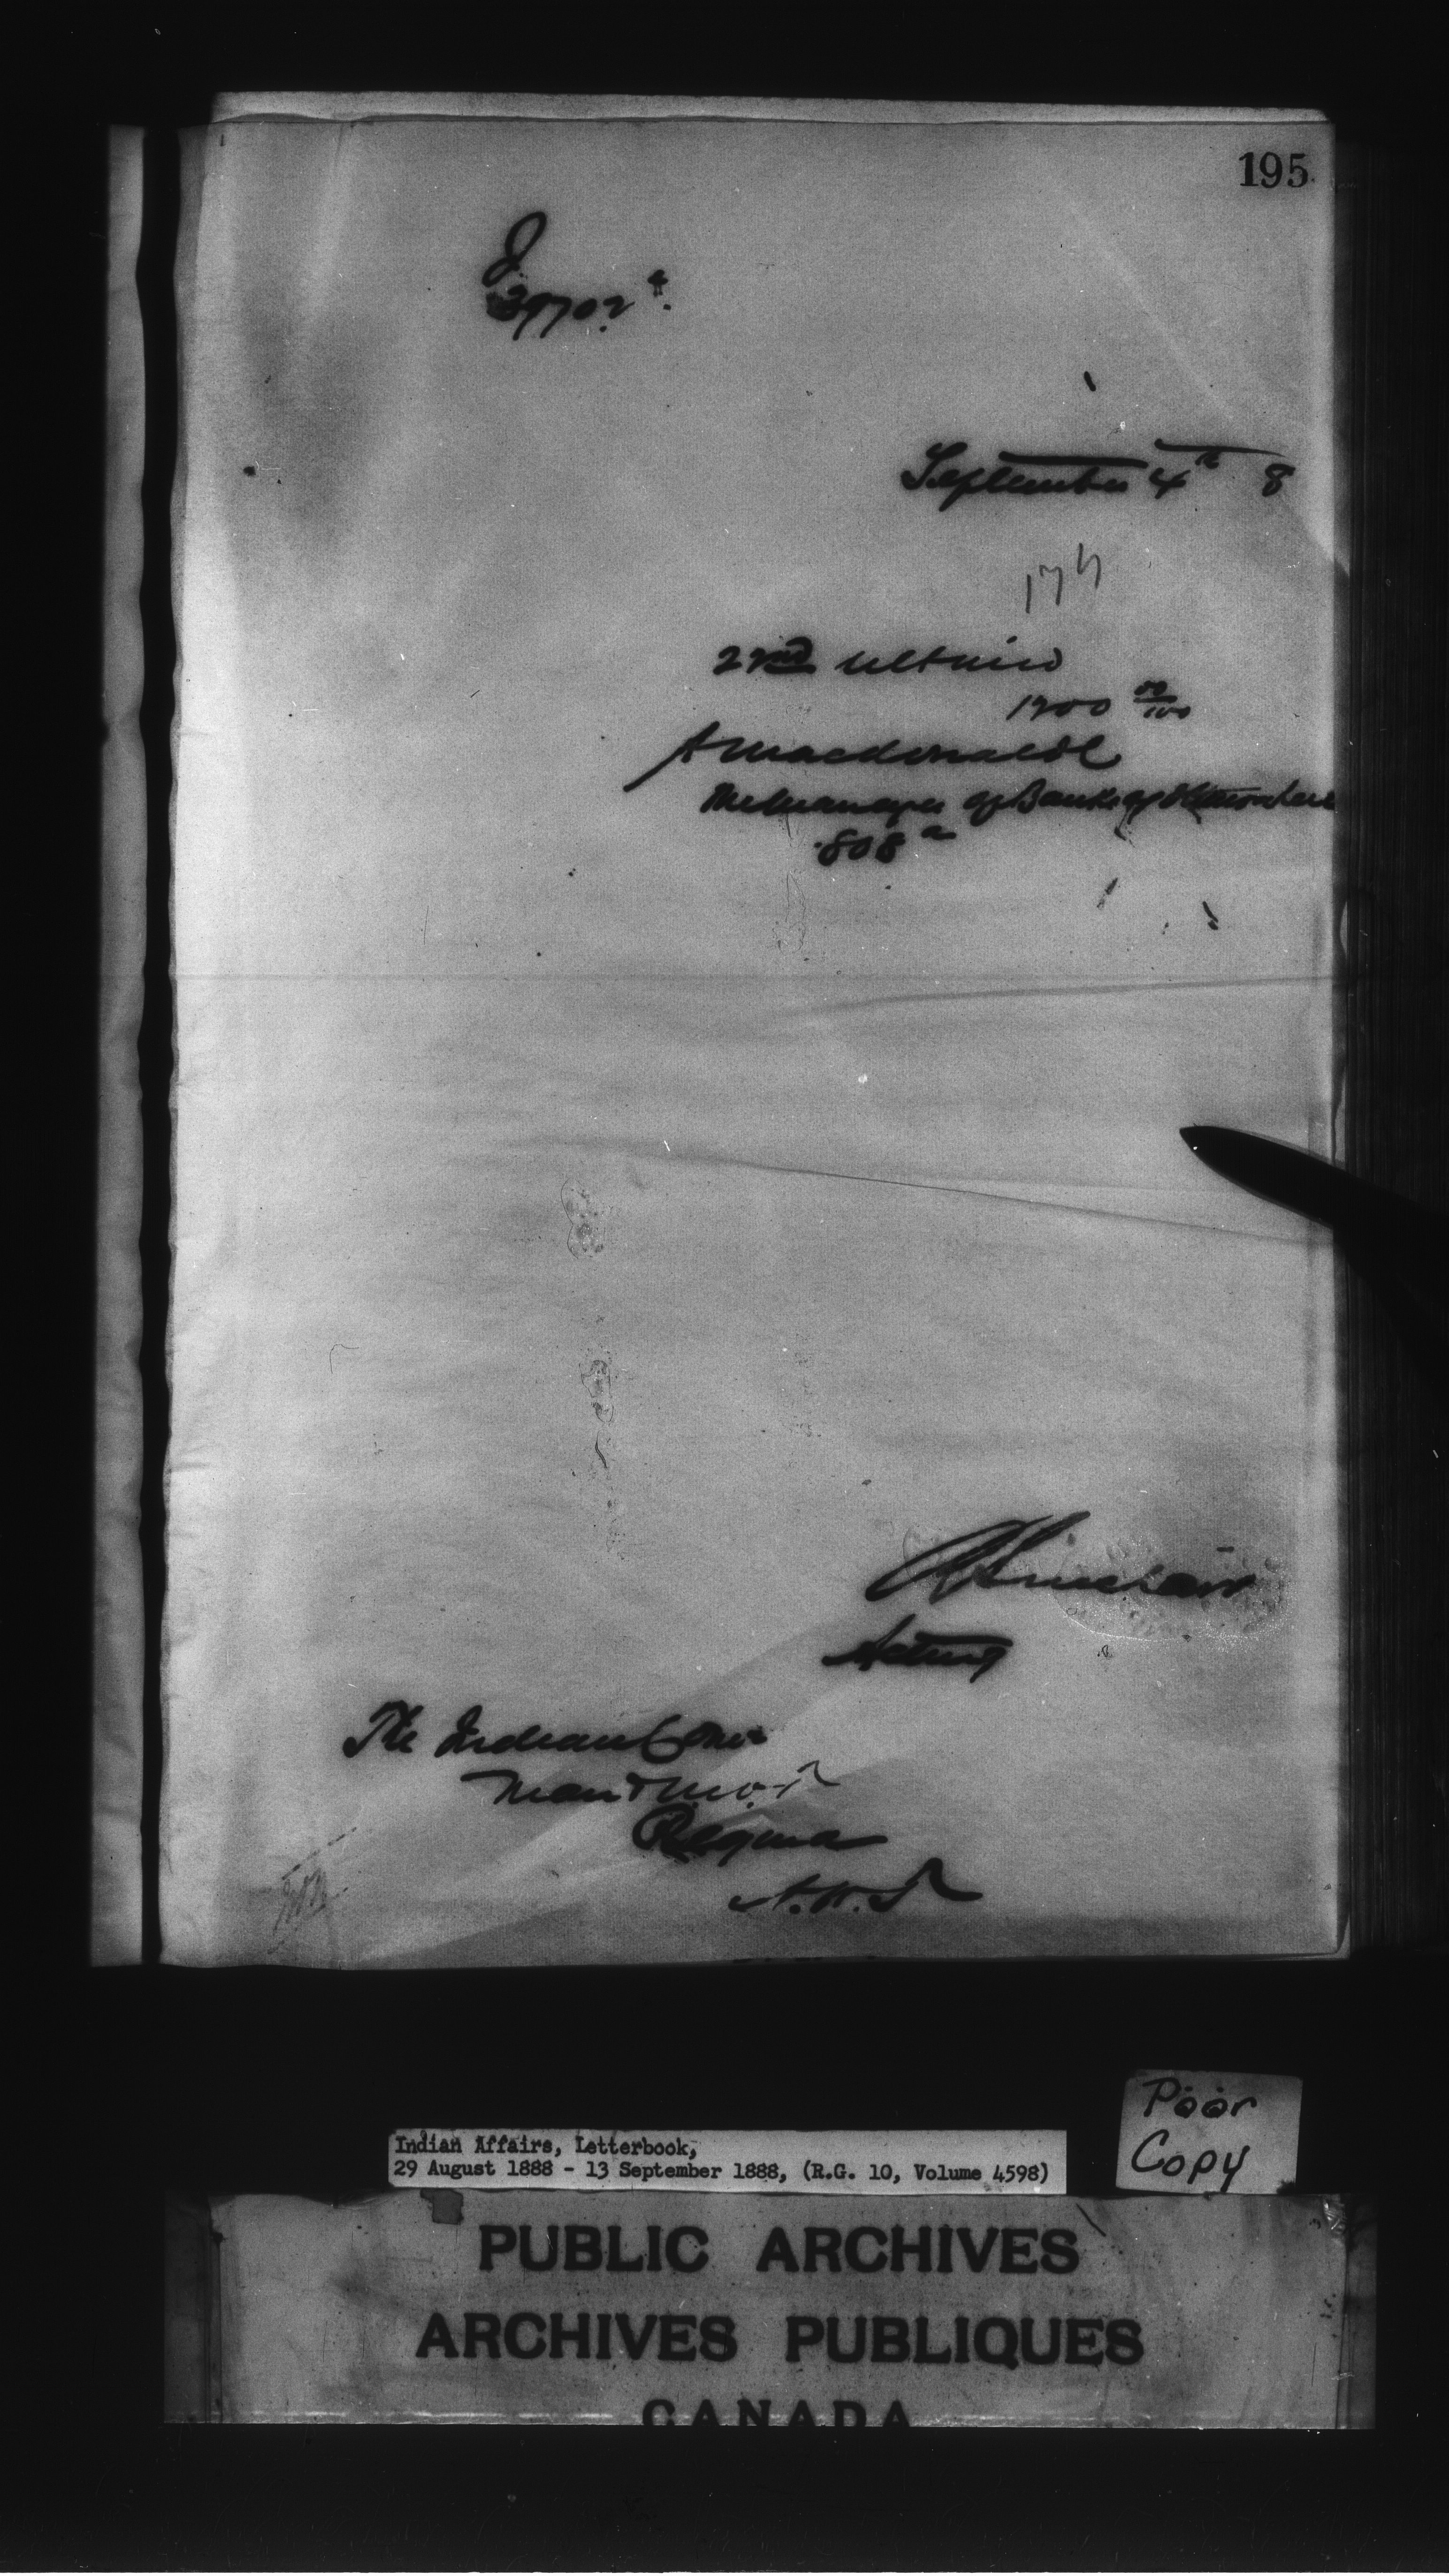 195
J
39702 4.
September 4th 8
174
22nd ultimo
1200 00/100
A Macdonald
The Manager of Bank of Montreal
808 a
R Sinclair
Acting
The Indian Comr
Man & N.W.T
Regina
N.W.T
Poor
Copy
Indian Affairs, Letterbook,
29 August 1888 - 13 September 1888, (R.G. 10, Volume 4598)
PUBLIC ARCHIVES
ARCHIVES PUBLIQUES
CANADA